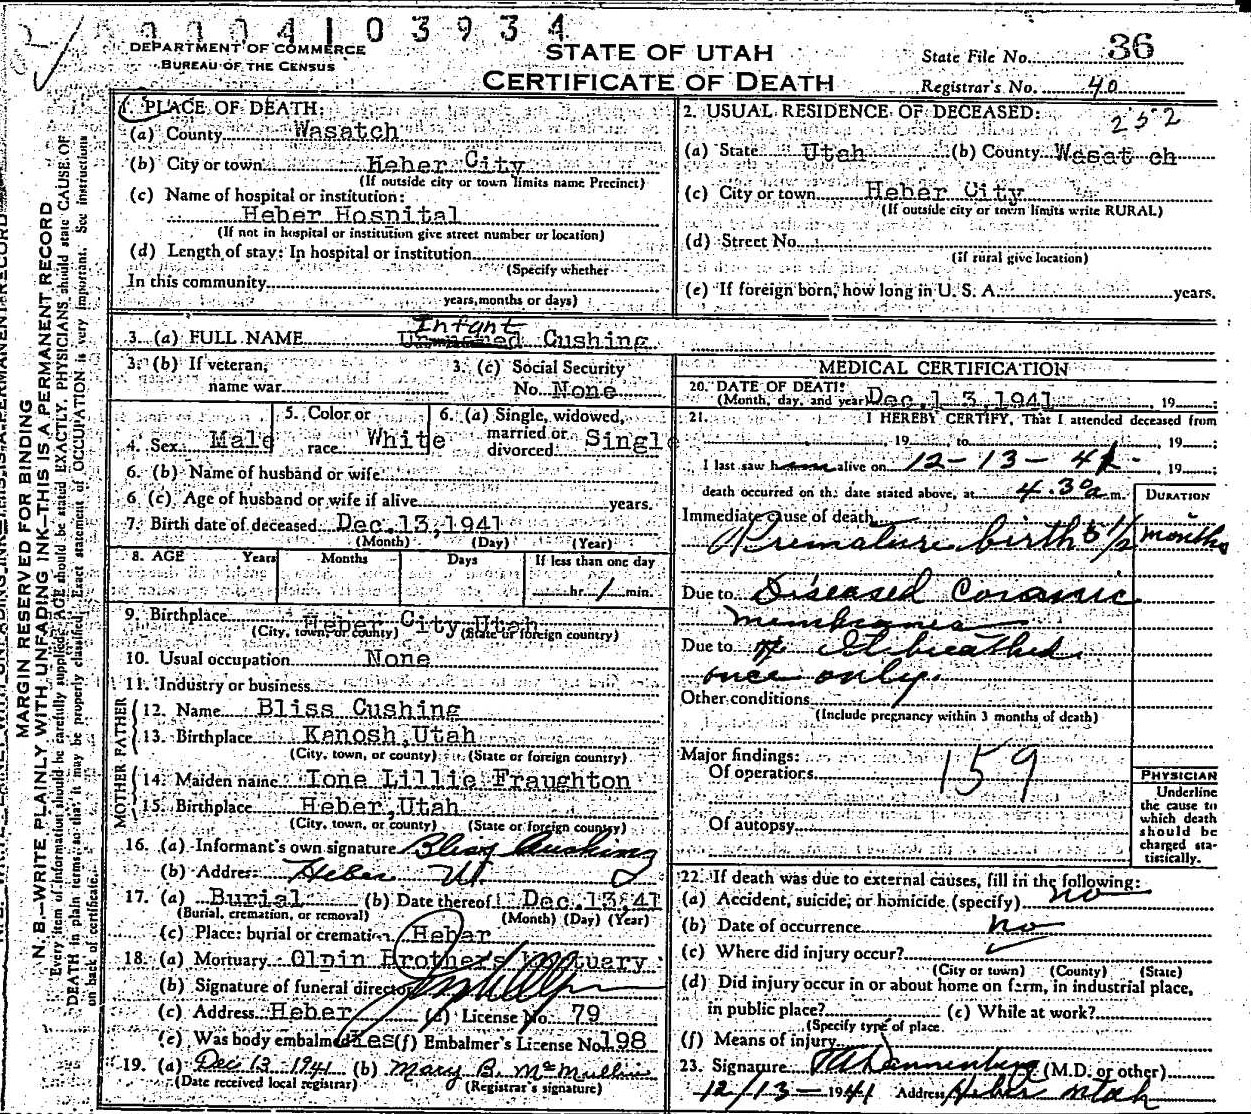 0004103934
DEPARTMENT OF COMMERCE
BUREAU OF THE CENSUS
STATE OF UTAH
CERTIFICATE OF DEATH
State File No. 36
Registrar's No. 40
MARGIN RESERVED FOR BINDING
N. B.—WRITE PLAINLY WITH UNFADING INK—THIS IS A PERMANENT RECORD
Every item of information should be carefully supplied. AGE should be stated EXACTLY. PHYSICIANS should state CAUSE OF
DEATH in plain terms, so that it may be properly classified. Exact statement of OCCUPATION is very important. See instructions
on back of certificate.
1. PLACE OF DEATH:
(a) County Wasatch
(b) City or town Heber City
(If outside city or town limits name Precinct)
(c) Name of hospital or institution:
Heber Hospital
(If not in hospital or institution give street number or location)
(d) Length of stay: In hospital or institution
(Specify whether
In this community
years, months or days)
2. USUAL RESIDENCE OF DECEASED:
252
(a) State Utah (b) County Wasatch
(c) City or town Heber City
(If outside city or town limits write RURAL)
(d) Street No.
(if rural give location)
(e) If foreign born, how long in U. S. A. years.
3. (a) FULL NAME Infant Cushing
3. (b) If veteran, name war
3. (c) Social Security No. None
4. Sex Male
5. Color or race White
6. (a) Single, widowed, married or divorced Single
6. (b) Name of husband or wife
6 (c) Age of husband or wife if alive years.
7. Birth date of deceased Dec.13,1941
(Month) (Day) (Year)
8. AGE Years Months Days If less than one day
hr. 1 min.
9. Birthplace Heber City Utah
(City, town, or county) (State or foreign country)
10. Usual occupation None
11. Industry or business
FATHER
12. Name Bliss Cushing
13. Birthplace Kanosh,Utah
(City, town, or county) (State or foreign country)
MOTHER
14. Maiden name Ione Lillie Fraughton
15. Birthplace Heber,Utah
(City, town, or county) (State or foreign country)
16. (a) Informant's own signature Bliss Cushing
(b) Address Heber Ut.
17. (a) Burial (b) Date thereof Dec.13,41
(Burial, cremation, or removal) (Month) (Day) (Year)
(c) Place: burial or cremation Heber
18. (a) Mortuary Olpin Brothers Mortuary
(b) Signature of funeral director
(c) Address Heber (d) License No. 79
(e) Was body embalmed Yes (f) Embalmer's License No. 198
19. (a) Dec 13 - 1941 (b) Mary B. McMullin
(Date received local registrar) (Registrar's signature)
MEDICAL CERTIFICATION
20. DATE OF DEATH:
(Month, day, and year) Dec.13,1941, 19
21. I HEREBY CERTIFY, That I attended deceased from
, 19 , to , 19 ;
I last saw him alive on 12-13-41, 19 ;
death occurred on the date stated above, at 4:30 a.m.
DURATION
Immediate cause of death
Premature birth 5 1/2 months
Due to Diseased
membranes
Due to It breathed
once only.
Other conditions
(Include pregnancy within 3 months of death)
Major findings:
Of operations
159
Of autopsy
PHYSICIAN
Underline
the cause to
which death
should be
charged sta-
tistically.
22. If death was due to external causes, fill in the following:
(a) Accident, suicide, or homicide (specify) no
(b) Date of occurrence no
(c) Where did injury occur?
(City or town) (County) (State)
(d) Did injury occur in or about home on farm, in industrial place,
in public place? (e) While at work?
(Specify type of place
(f) Means of injury
23. Signature Dannenberg (M.D. or other)
12/13-1941 Address Heber Utah